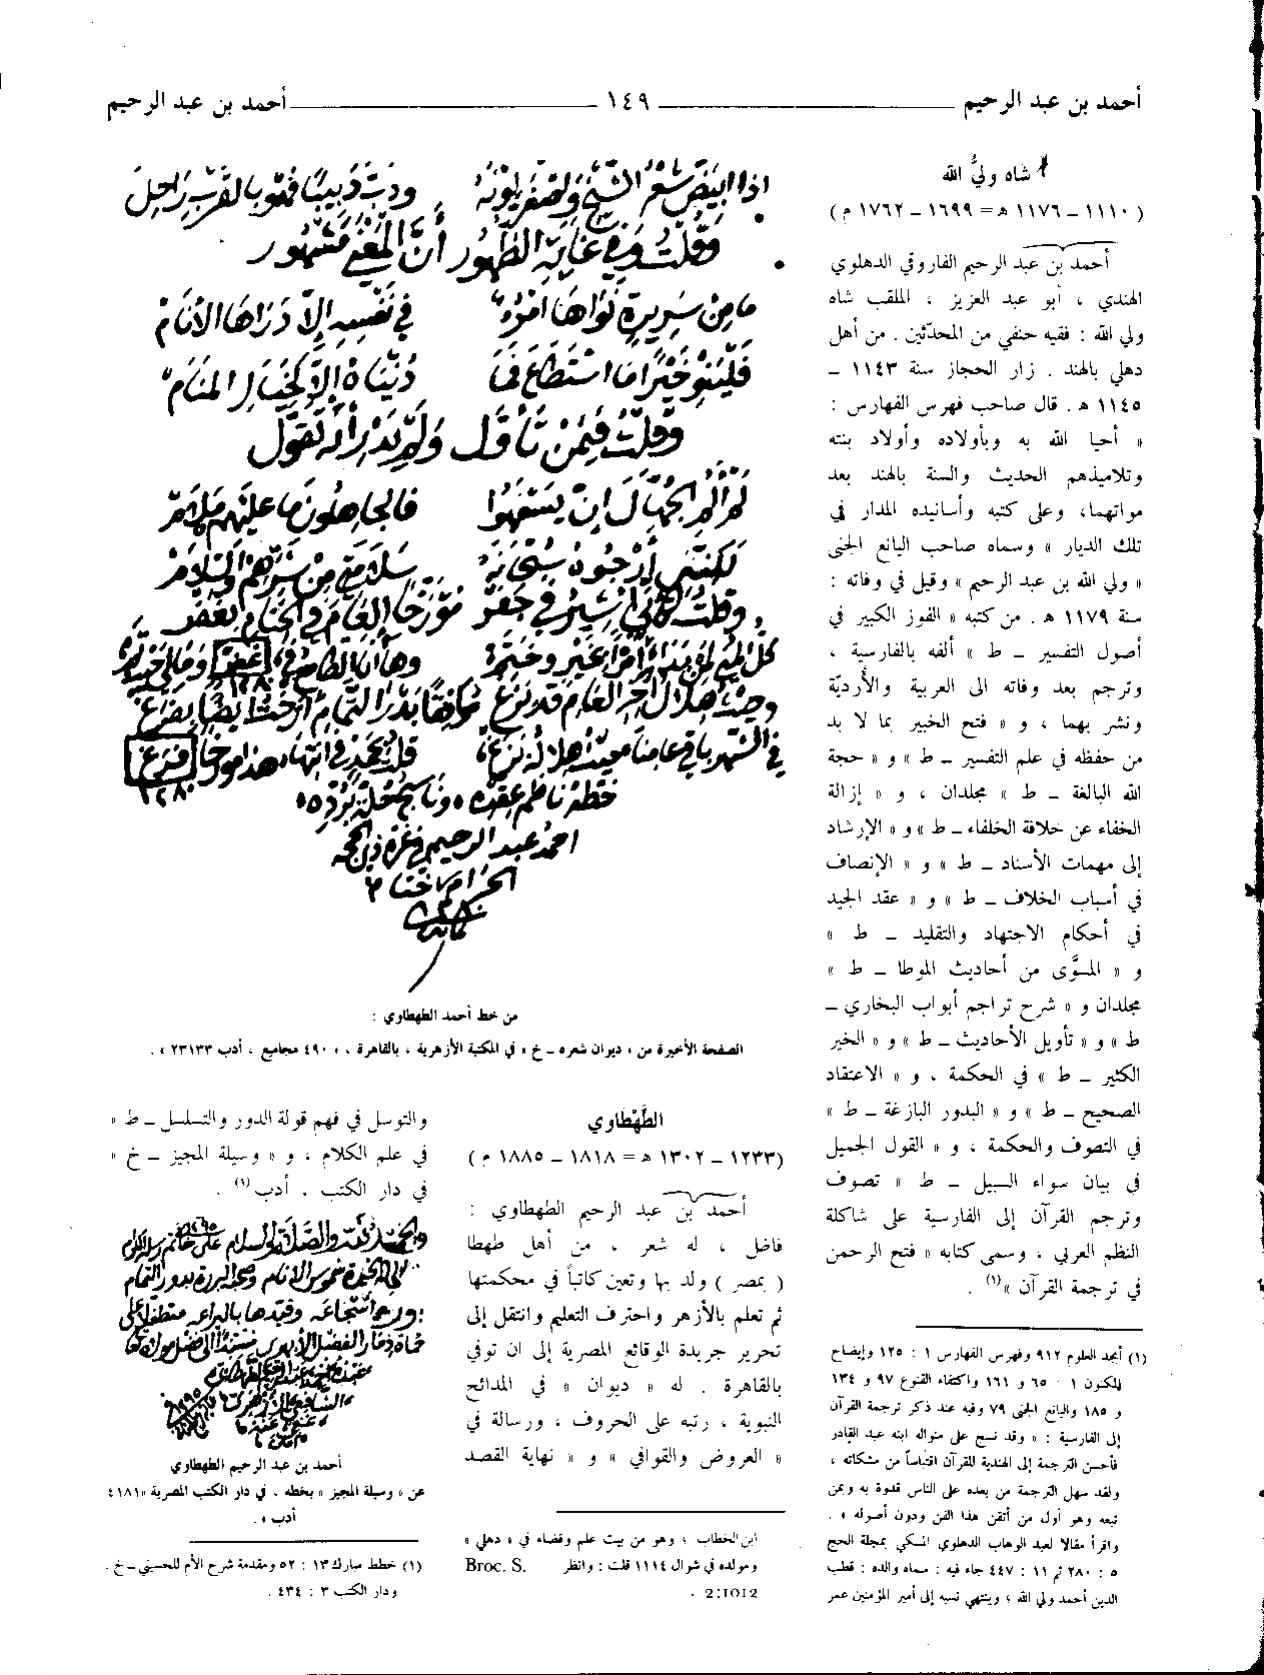 أحمد بن عبد الرحيم ١٤٩ أحمد بن عبد الرحيم
شاه وليُّ الله
(١١١٠ ـ ١١٧٦ ھ = ١٦٩٩ ـ ١٧٦٢ م)
أحمد بن عبد الرحيم الفاروقي الدهلوي
الهندي ، أبو عبد العزيز ، الملقب شاه
ولي الله : فقيه حنفي من المحدّثين . من أهل
دهلي بالهند . زار الحجاز سنة ١١٤٣ ـ
١١٤٥ ھ . قال صاحب فهرس الفهارس :
« أحيا الله به وبأولاده وأولاد بنته
وتلاميذهم الحديث والسنة بالهند بعد
مواتهما، وعلى كتبه وأسانيده المدار في
تلك الديار » وسماه صاحب اليانع الجنى
« ولي الله بن عبد الرحيم » وقيل في وفاته :
سنة ١١٧٩ ھ . من كتبه « الفوز الكبير في
أصول التفسير ـ ط » ألفه بالفارسية ،
وترجم بعد وفاته الى العربية والأُرديّة
ونشر بهما ، و « فتح الخبير بما لا بد
من حفظه في علم التفسير ـ ط » و « حجة
الله البالغة ـ ط » مجلدان ، و « إزالة
الخفاء عن خلافة الخلفاء ـ ط » و « الإرشاد
إلى مهمات الأسناد ـ ط » و « الإنصاف
في أسباب الخلاف ـ ط » و « عقد الجيد
في أحكام الاجتهاد والتقليد ـ ط »
و « المسوَّى من أحاديث الموطا ـ ط »
مجلدان و « شرح تراجم أبواب البخاري ـ
ط » و « تأويل الأحاديث ـ ط » و « الخير
الكثير ـ ط » في الحكمة ، و « الاعتقاد
الصحيح ـ ط » و « البدور البازغة ـ ط »
في التصوف والحكمة ، و « القول الجميل
في بيان سواء السبيل ـ ط » تصوف
وترجم القرآن إلى الفارسية على شاكلة
النظم العربي ، وسمى كتابه « فتح الرحمن
في ترجمة القرآن »(١) .
(١) أبجد العلوم ٩١٢ وفهرس الفهارس ١ : ١٢٥ وإيضاح
المكنون ١ : ٦٥ و ١٦١ واكتفاء القنوع ٩٧ و ١٣٤
و ١٨٥ واليانع الجنى ٧٩ وفيه عند ذكر ترجمة القرآن
إلى الفارسية : « وقد نسج على منواله ابنه عبد القادر
فأحسن الترجمة إلى الهندية للقرآن اقتباساً من مشكاته ،
ولقد سهل الترجمة من بعده على الناس قدوة به وبمن
تبعه وهو أول من أتقن هذا الفن ودون أصوله » .
واقرأ مقالا لعبد الوهاب الدهلوي المكي بمجلة الحج
٥ : ٢٨٠ ثم ١١ : ٤٤٧ جاء فيه : سماه والده : قطب
الدين أحمد ولي الله ؛ وينتهي نسبه إلى أمير المؤمنين عمر
اذا ابيض شعر الشيخ واصفر لونه ودب دبيبا فهو بالقرب راحل
وقلت وفي غاية الظهور أن المعنى مشهور
ما من سريرة نواها امرؤ في نفسه إلا دراها الأنام
فلينو خيرا ما استطاع فما دنياه إلا كخيال المنام
وقلت فيمن تأول ولم يدر أنه تقول
فالجاهلون ما عليهم ملام
لكنني أرجوه سبحانه سلامتي من شرهم والسلام
١٢٨٠
١٢٨٠
احمد عبد الرحيم في غرة ذي الحجة
الحرام ختام
١٢٨٠
من خط أحمد الطهطاوي :
الصفحة الأخيرة من « ديوان شعره ـ خ » في المكتبة الأزهرية ، بالقاهرة ، « ٤٩٠ مجاميع ، أدب ٢٣١٣٣ » .
الطَّهْطاوي
(١٢٣٣ ـ ١٣٠٢ ھ = ١٨١٨ ـ ١٨٨٥ م)
أحمد بن عبد الرحيم الطهطاوي :
فاضل ، له شعر . من أهل طهطا
( بمصر ) ولد بها وتعين كاتباً في محكمتها
ثم تعلم بالأزهر واحترف التعليم وانتقل إلى
تحرير جريدة الوقائع المصرية إلى ان توفي
بالقاهرة . له « ديوان » في المدائح
النبوية ، رتبه على الحروف ، ورسالة في
« العروض والقوافي » و « نهاية القصد
ابن الخطاب ؛ وهو من بيت علم وقضاء في « دهلي »
ومولده في شوال ١١١٤ قلت : وانظر Broc. S.
2:1012 .
والتوسل في فهم قولة الدور والتسلسل ـ ط »
في علم الكلام ، و « وسيلة المجيز ـ خ »
في دار الكتب . أدب(١) .
أحمد بن عبد الرحيم الطهطاوي
عن « وسيلة المجيز » بخطه ، في دار الكتب المصرية «٤١٨١
أدب » .
(١) خطط مبارك ١٣ : ٥٢ ومقدمة شرح الأم للحسيني ـ خ .
ودار الكتب ٣ : ٤٣٤ .